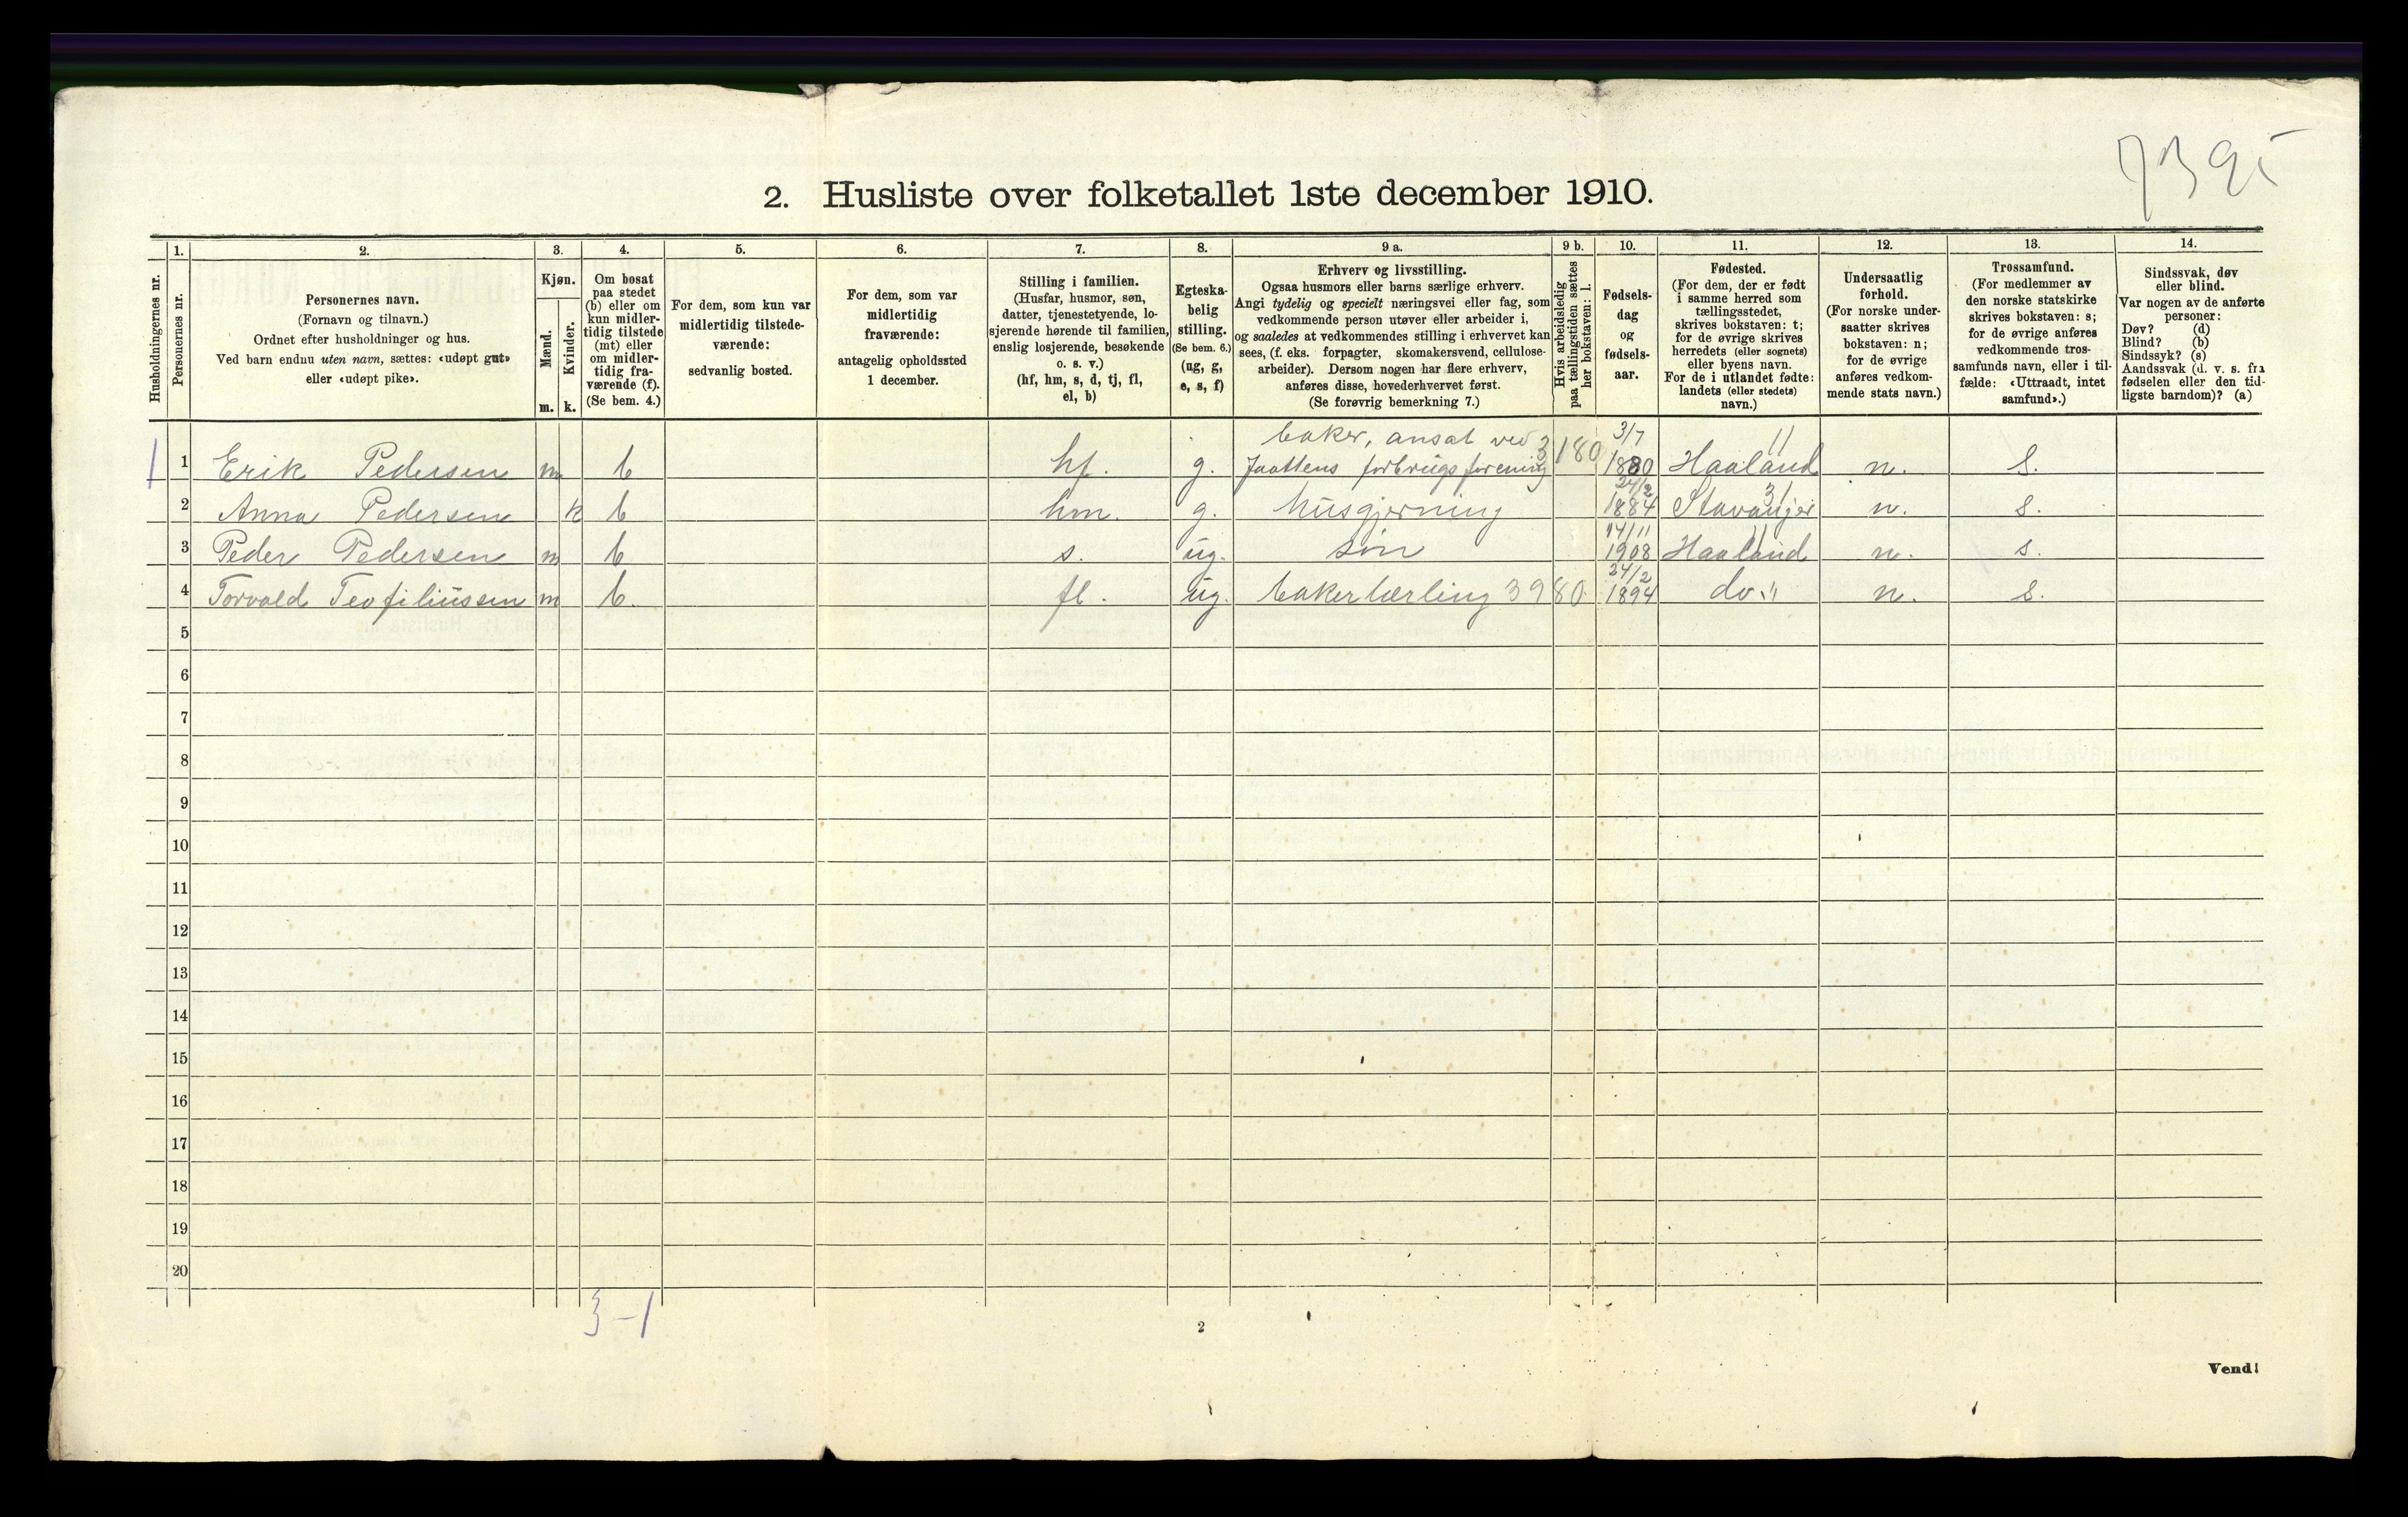 7395
2. Husliste over folketallet 1ste december 1910.
Husholdningernes nr.
1. Personernes nr.
2. Personernes navn. (Fornavn og tilnavn.) Ordnet efter husholdninger og hus. Ved barn endnu uten navn, sættes: «udøpt gut» eller «udøpt pike».
3. Kjøn. Mænd. m. Kvinder. k.
4. Om bosat paa stedet (b) eller om kun midler-tidig tilstede (mt) eller om midler-tidig fra-værende (f). (Se bem. 4.)
5. For dem, som kun var midlertidig tilstede-værende: sedvanlig bosted.
6. For dem, som var midlertidig fraværende: antagelig opholdssted 1 december.
7. Stilling i familien. (Husfar, husmor, søn, datter, tjenestetyende, lo-sjerende hørende til familien, enslig losjerende, besøkende o. s. v.) (hf, hm, s, d, tj, fl, el, b)
8. Egteska-belig stilling. (Se bem. 6.) (ug, g, e, s, f)
9 a. Erhverv og livsstilling. Ogsaa husmors eller barns særlige erhverv. Angi tydelig og specielt næringsvei eller fag, som vedkommende person utøver eller arbeider i, og saaledes at vedkommendes stilling i erhvervet kan sees, (f. eks. forpagter, skomakersvend, cellulose-arbeider). Dersom nogen har flere erhverv, anføres disse, hovederhvervet først. (Se forøvrig bemerkning 7.)
9 b. Hvis arbeidsledig paa tællingstiden sættes her bokstaven: l.
10. Fødsels-dag og fødsels-aar.
11. Fødested. (For dem, der er født i samme herred som tællingsstedet, skrives bokstaven: t; for de øvrige skrives herredets (eller sognets) eller byens navn. For de i utlandet fødte: landets (eller stedets) navn.)
12. Undersaatlig forhold. (For norske under-saatter skrives bokstaven: n; for de øvrige anføres vedkom-mende stats navn.)
13. Trossamfund. (For medlemmer av den norske statskirke skrives bokstaven: s; for de øvrige anføres vedkommende tros-samfunds navn, eller i til-fælde: «Uttraadt, intet samfund».)
14. Sindssvak, døv eller blind. Var nogen av de anførte personer: Døv? (d) Blind? (b) Sindssyk? (s) Aandssvak (d. v. s. fra fødselen eller den tid-ligste barndom)? (a)
1 1 Erik Pedersen m b hf. g. baker, ansat ved Jaattens forbrugsforening 3180 3/7 1880 Haaland 11 n. s.
2 Anna Pedersen k b hm. g. husgjerning 24/2 1884 Stavanger 31 n. s.
3 Peder Pedersen m b s. ug. søn 14/11 1908 Haaland 11 n. s.
4 Torvald Teofiliussen m b. fl. ug. bakerlærling 3980 24/2 1894 do. 11 n. s.
5
6
7
8
9
10
11
12
13
14
15
16
17
18
19
20
3-1
2
Vend!